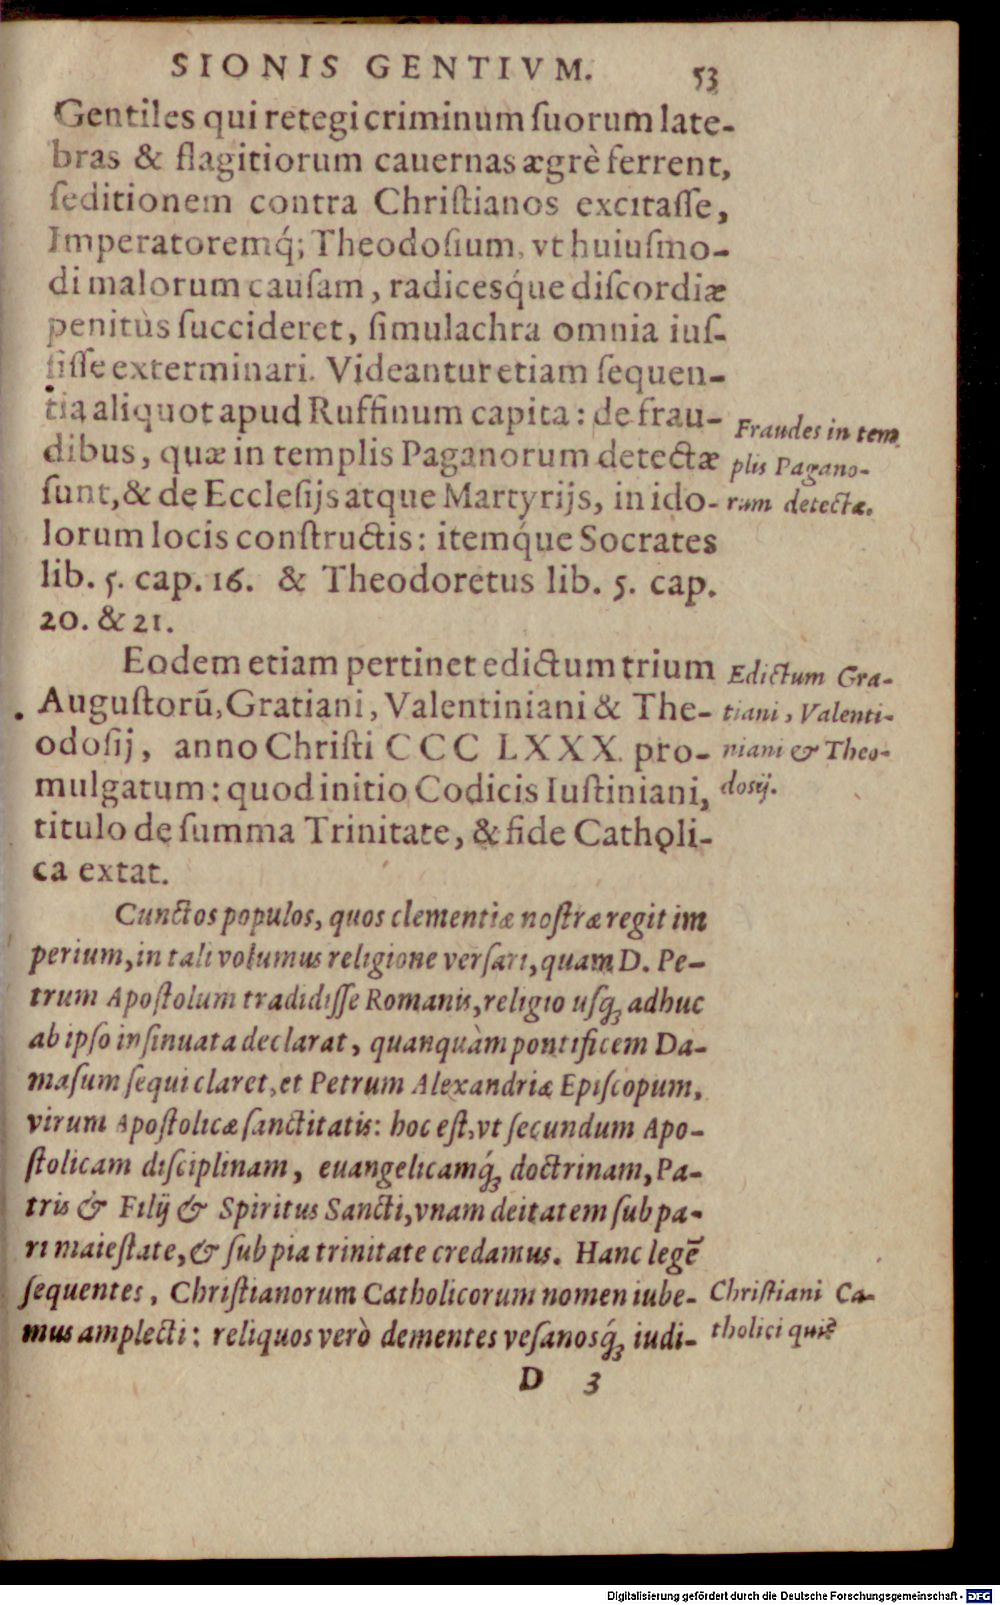 SIONIS GENTIVM. 53
Gentiles qui retegi criminum ſuorum late-
bras & flagitiorum cauernas ægrè ferrent,
ſeditionem contra Chriſtianos excitaſſe,
Imperatoremq́; Theodoſium, vt huiuſmo-
di malorum cauſam, radicesq́ue diſcordiæ
penitùs ſuccideret, ſimulachra omnia iuſ-
ſiſſe exterminari. Videantur etiam ſequen-
tia aliquot apud Ruffinum capita: de frau-
dibus, quæ in templis Paganorum detectæ
ſunt, & de Eccleſijs atque Martyrijs, in ido-
lorum locis conſtructis: itemq́ue Socrates
lib. 5. cap. 16. & Theodoretus lib. 5. cap.
20. & 21.
Fraudes in tem
plis Pagano-
rum detectæ.
Eodem etiam pertinet edictum trium
Auguſtorū, Gratiani, Valentiniani & The-
odoſij, anno Chriſti CCC LXXX. pro-
mulgatum: quod initio Codicis Iuſtiniani,
titulo de ſumma Trinitate, & fide Catholi-
ca extat.
Edictum Gra-
tiani, Valenti-
niani & Theo-
dosij.
Cunctos populos, quos clementiæ noſtræ regit im
perium, in tali volumus religione verſari, quam D. Pe-
trum Apoſtolum tradidiſſe Romanis, religio uſq; adhuc
ab ipſo inſinuata declarat, quanquàm pontificem Da-
maſum ſequi claret, et Petrum Alexandriæ Epiſcopum,
virum Apoſtolicæ ſanctitatis: hoc eſt, vt ſecundum Apo-
ſtolicam diſciplinam, euangelicamq́; doctrinam, Pa-
tris & Filij & Spiritus Sancti, vnam deitatem ſub pa-
ri maieſtate, & ſub pia trinitate credamus. Hanc legē
ſequentes, Chriſtianorum Catholicorum nomen iube-
mus amplecti: reliquos verò dementes veſanosq́; iudi-
Chriſtiani Ca-
tholici qui?
D 3
Digitalisierung gefördert durch die Deutsche Forschungsgemeinschaft - DFG